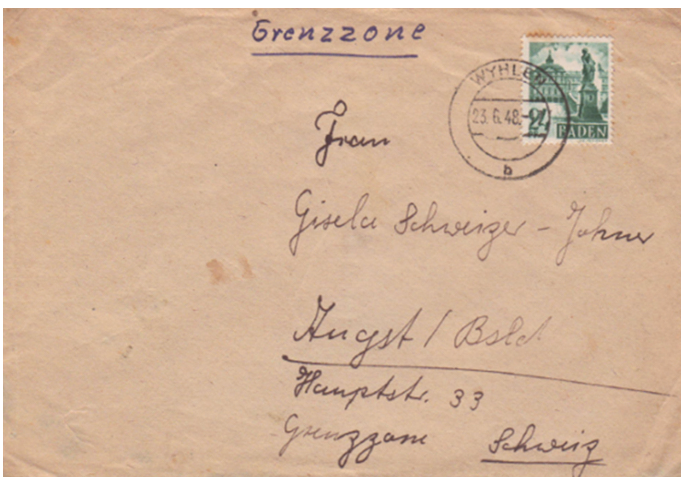 Grenzzone
WYHLEN
23.6.48.
b
24
BADEN
Frau
Gisela Schweizer - Johner
Augst / Bsld
Hauptstr. 33
Grenzzone Schweiz